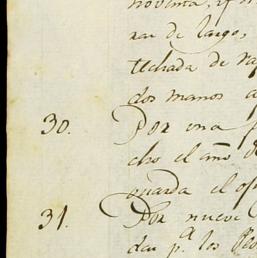 noventa, y
rar de largo,
techada de
dos manos a
30. Por una
cho el año de
guarda el
31. Por nueve
den p.ª los